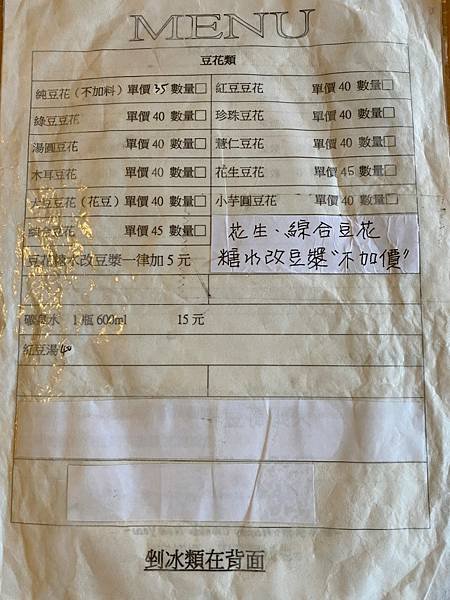 MENU
豆花類
純豆花（不加料）單價 35 數量□ 紅豆豆花 單價 40 數量□
綠豆豆花 單價 40 數量□ 珍珠豆花 單價 40 數量□
湯圓豆花 單價 40 數量□ 薏仁豆花 單價 40 數量□
木耳豆花 單價 40 數量□ 花生豆花 單價 45 數量□
大豆豆花（花豆）單價 40 數量□ 小芋圓豆花 單價 40 數量□
綜合豆花 單價 45 數量□ 花生、綜合豆花
豆花糖水改豆漿一律加 5 元 糖水改豆漿"不加價"
礦泉水 1 瓶 600ml 15 元
紅豆湯 40
剉冰類在背面